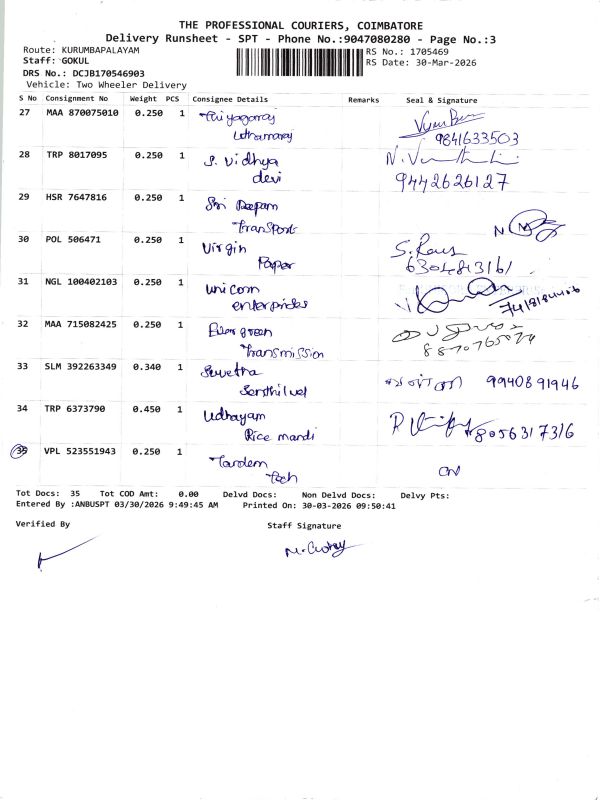 THE PROFESSIONAL COURIERS, COIMBATORE
Delivery Runsheet - SPT - Phone No.:9047080280 - Page No.:3
Route: KURUMBAPALAYAM
RS No.: 1705469
Staff: GOKUL
RS Date: 30-Mar-2026
DRS No.: DCJB170546903
Vehicle: Two Wheeler Delivery
S No Consignment No Weight PCS Consignee Details Remarks Seal & Signature
27 MAA 870075010 0.250 1 Thiyagaraj
Uthamaraj
9841633503
28 TRP 8017095 0.250 1 S. Vidhya
devi
9442626127
29 HSR 7647816 0.250 1 Shri Deepam
Transport
30 POL 506471 0.250 1 Virgin
Paper
6304843161
31 NGL 100402103 0.250 1 unicorn
enterprises
32 MAA 715082425 0.250 1 Evergreen
Transmission
33 SLM 392263349 0.340 1 Swetha
Senthilvel
9940891946
34 TRP 6373790 0.450 1 Udhayam
Rice mandi
8056317316
35 VPL 523551943 0.250 1 Tandem
Tech
Tot Docs: 35 Tot COD Amt: 0.00 Delvd Docs: Non Delvd Docs: Delvy Pts:
Entered By :ANBUSPT 03/30/2026 9:49:45 AM Printed On: 30-03-2026 09:50:41
Verified By
Staff Signature